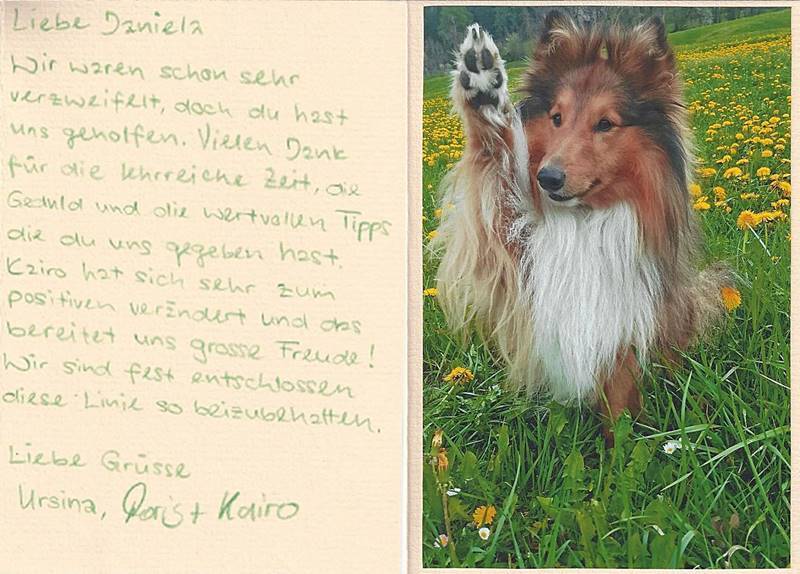 Liebe Daniela
Wir waren schon sehr
verzweifelt, doch du hast
uns geholfen. Vielen Dank
für die lehrreiche Zeit, die
Geduld und die wertvollen Tipps
die du uns gegeben hast.
Kairo hat sich sehr zum
positiven verändert und das
bereitet uns grosse Freude!
Wir sind fest entschlossen
diese Linie so beizubehalten.
Liebe Grüsse
Ursina, Doris + Kairo